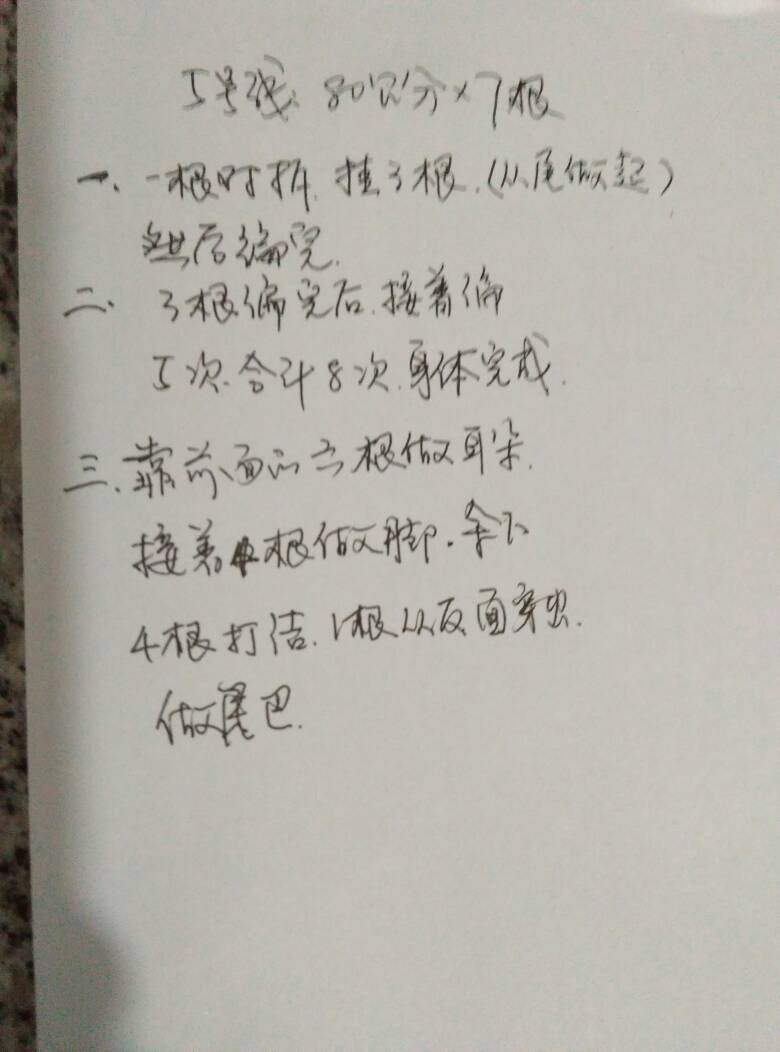 5号线 80公分×7根
一、一根对折.挂3根.(从尾做起)
然后编完.
二、3根编完后.接着编
5次.合计8次.身体完成.
三、靠前面的二根做耳朵.
接着4根做脚.余下
4根打结.1根从反面穿出.
做尾巴.